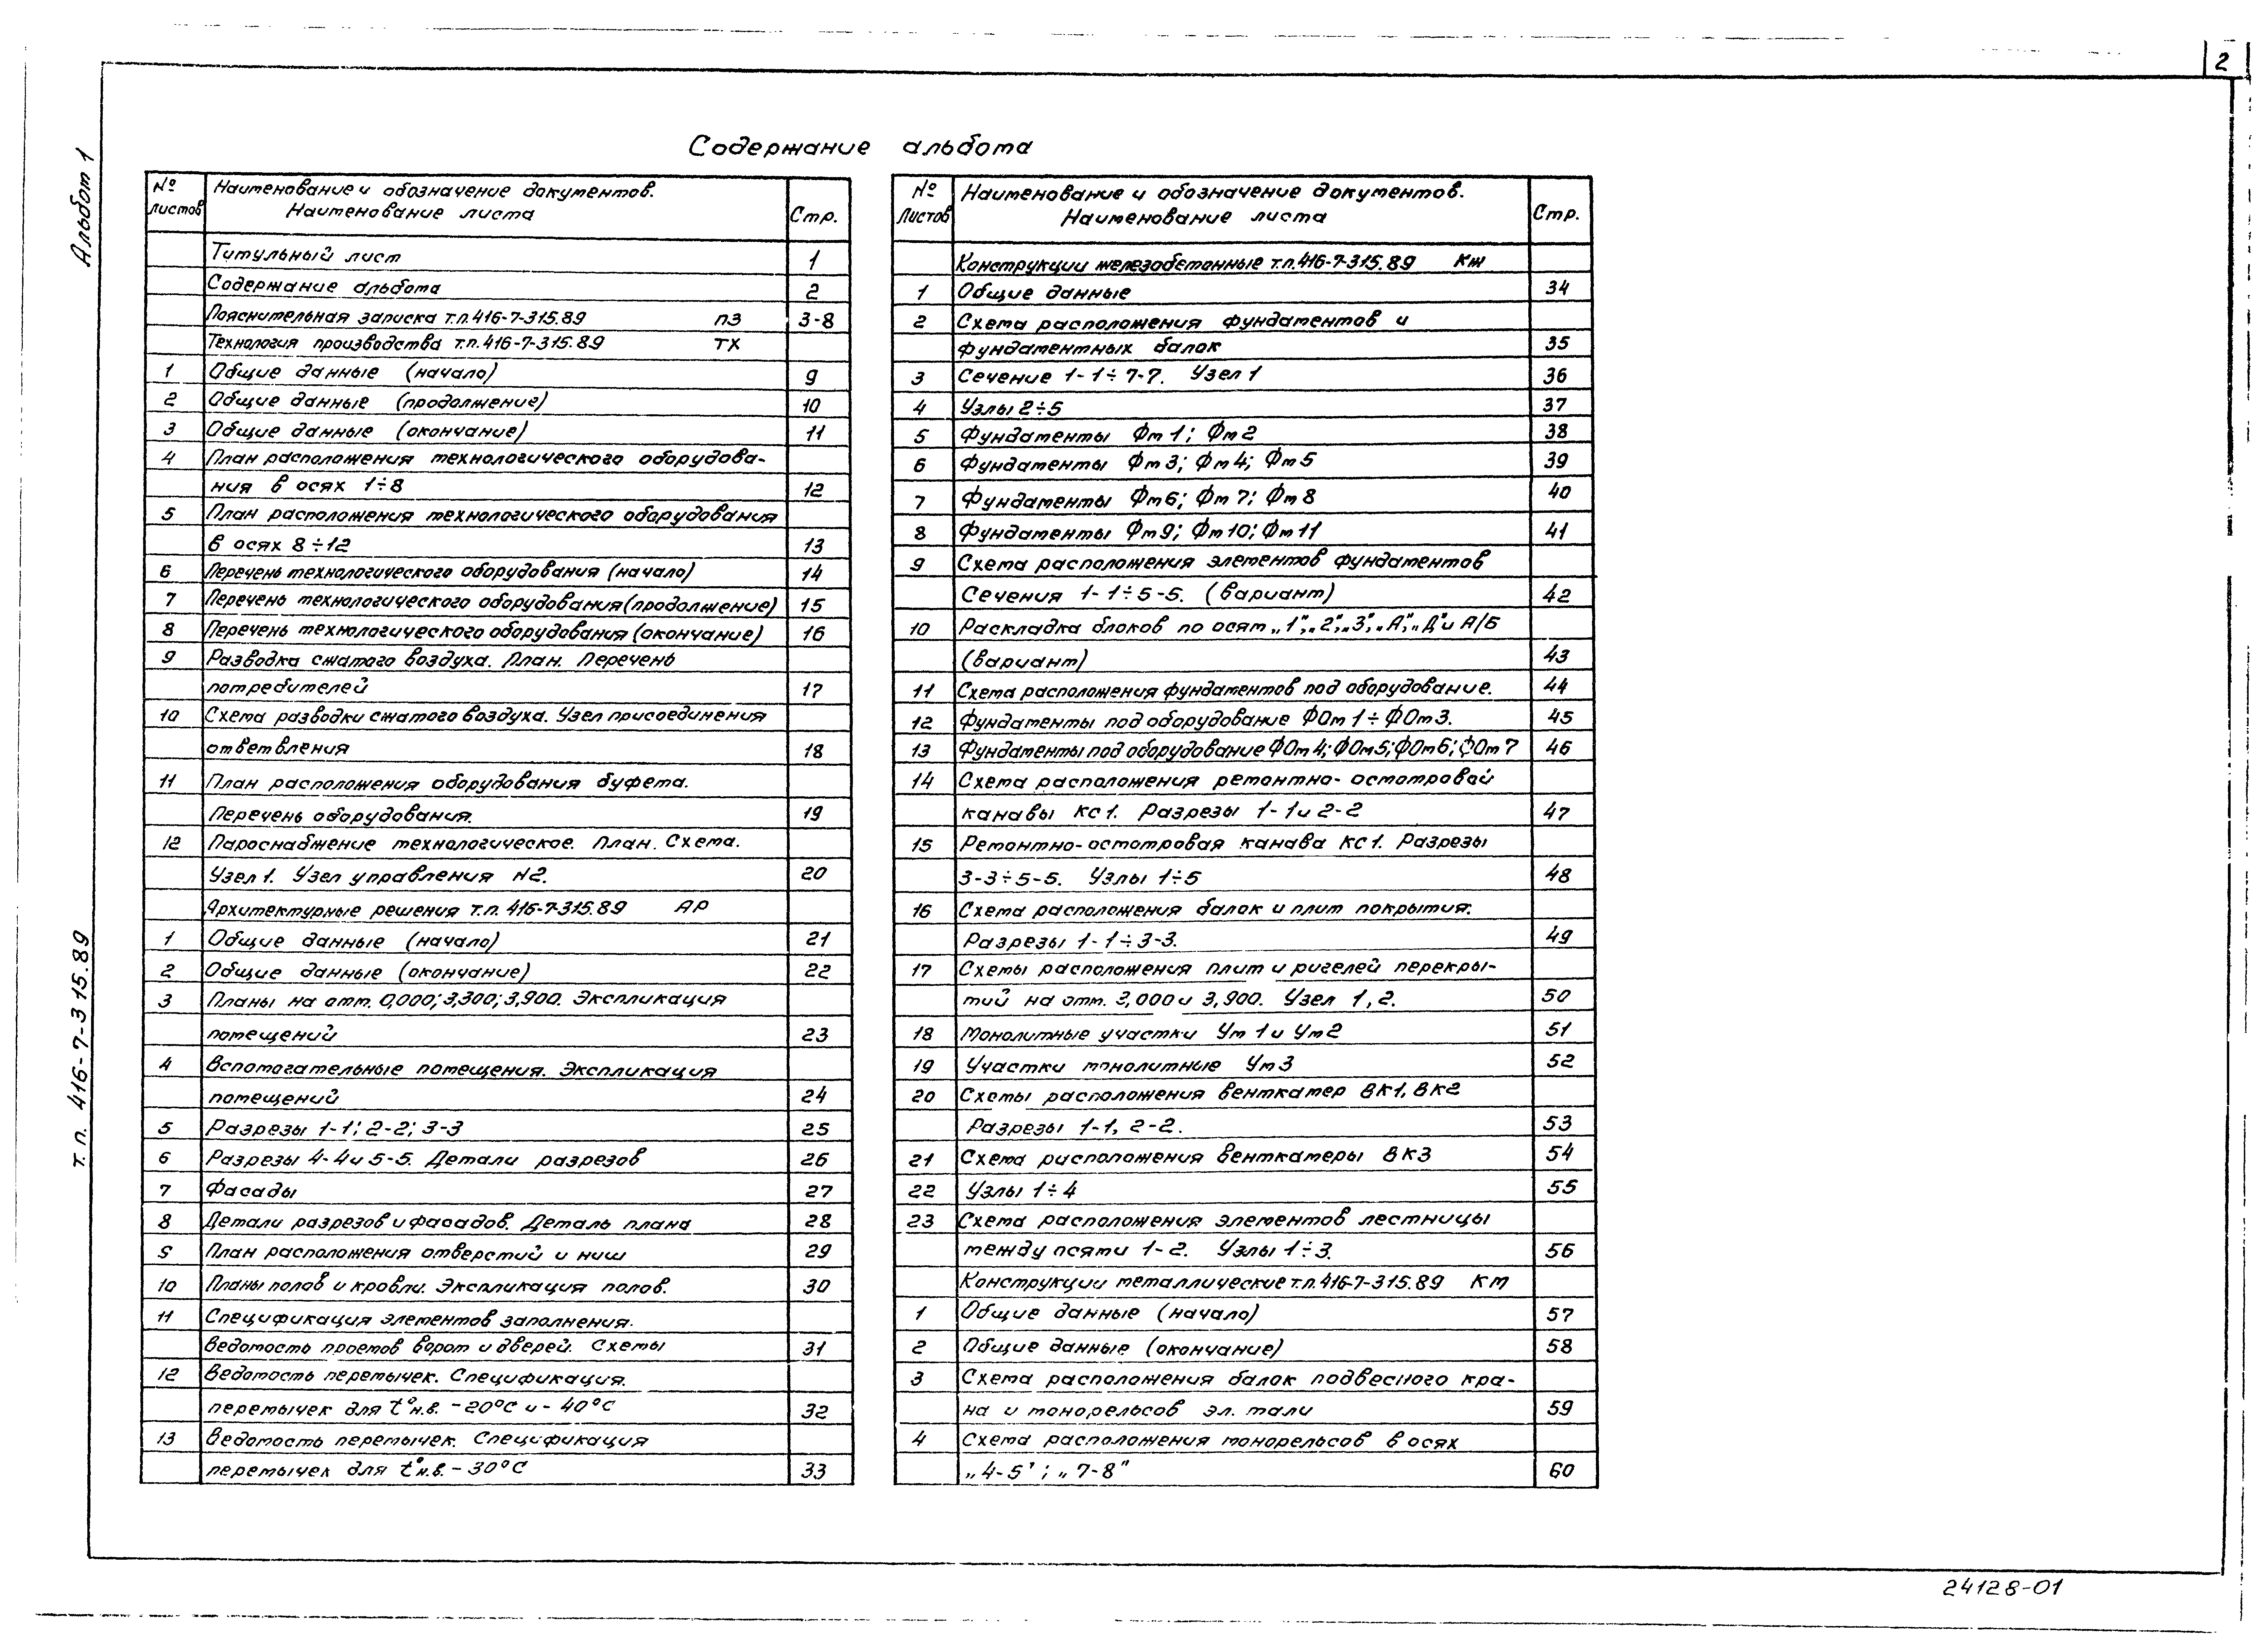 2
Альбом 1
т. п. 416-7-315.89
Содержание альбома
№ листов Наименование и обозначение документов. Наименование листа Стр.
Титульный лист 1
Содержание альбома 2
Пояснительная записка т.п. 416-7-315.89 ПЗ 3-8
Технология производства т.п. 416-7-315.89 ТХ
1 Общие данные (начало) 9
2 Общие данные (продолжение) 10
3 Общие данные (окончание) 11
4 План расположения технологического оборудова-
ния в осях 1÷8 12
5 План расположения технологического оборудования
в осях 8÷12 13
6 Перечень технологического оборудования (начало) 14
7 Перечень технологического оборудования (продолжение) 15
8 Перечень технологического оборудования (окончание) 16
9 Разводка сжатого воздуха. План. Перечень
потребителей 17
10 Схема разводки сжатого воздуха. Узел присоединения
ответвления 18
11 План расположения оборудования буфета.
Перечень оборудования. 19
12 Пароснабжение технологическое. План. Схема.
Узел 1. Узел управления N2. 20
Архитектурные решения т.п. 416-7-315.89 АР
1 Общие данные (начало) 21
2 Общие данные (окончание) 22
3 Планы на отм. 0,000; 3,300; 3,900. Экспликация
помещений 23
4 Вспомогательные помещения. Экспликация
помещений 24
5 Разрезы 1-1; 2-2; 3-3 25
6 Разрезы 4-4 и 5-5. Детали разрезов 26
7 Фасады 27
8 Детали разрезов и фасадов. Деталь плана 28
9 План расположения отверстий и ниш 29
10 Планы полов и кровли. Экспликация полов. 30
11 Спецификация элементов заполнения.
Ведомость проемов ворот и дверей. Схемы 31
12 Ведомость перемычек. Спецификация.
перемычек для t°н.в. -20°С и -40°С 32
13 Ведомость перемычек. Спецификация
перемычек для t°н.в. -30°С 33
№ листов Наименование и обозначение документов. Наименование листа Стр.
Конструкции железобетонные т.п. 416-7-315.89 КЖ
1 Общие данные 34
2 Схема расположения фундаментов и
фундаментных балок 35
3 Сечение 1-1÷7-7. Узел 1 36
4 Узлы 2÷5 37
5 Фундаменты Фм1; Фм2 38
6 Фундаменты Фм3; Фм4; Фм5 39
7 Фундаменты Фм6; Фм7; Фм8 40
8 Фундаменты Фм9; Фм10; Фм11 41
9 Схема расположения элементов фундаментов
Сечения 1-1÷5-5. (вариант) 42
10 Раскладка блоков по осям „1", „2", „3", „А", „Д" и А/Б
(вариант) 43
11 Схема расположения фундаментов под оборудование. 44
12 Фундаменты под оборудование ФОм1÷ФОм3. 45
13 Фундаменты под оборудование ФОм4; ФОм5; ФОм6; ФОм7 46
14 Схема расположения ремонтно-осмотровой
канавы КС1. Разрезы 1-1 и 2-2 47
15 Ремонтно-осмотровая канава КС1. Разрезы
3-3÷5-5. Узлы 1÷5 48
16 Схема расположения балок и плит покрытия.
Разрезы 1-1÷3-3. 49
17 Схемы расположения плит и ригелей перекры-
тий на отм. 3,000 и 3,900. Узел 1, 2. 50
18 Монолитные участки Ум1 и Ум2 51
19 Участки монолитные Ум3 52
20 Схемы расположения венткамер ВК1, ВК2
Разрезы 1-1, 2-2. 53
21 Схема расположения венткамеры ВК3 54
22 Узлы 1÷4 55
23 Схема расположения элементов лестницы
между осями 1-2. Узлы 1÷3. 56
Конструкции металлические т.п. 416-7-315.89 КМ
1 Общие данные (начало) 57
2 Общие данные (окончание) 58
3 Схема расположения балок подвесного кра-
на и монорельсов эл. тали 59
4 Схема расположения монорельсов в осях
„4-5"; „7-8" 60
24128-01